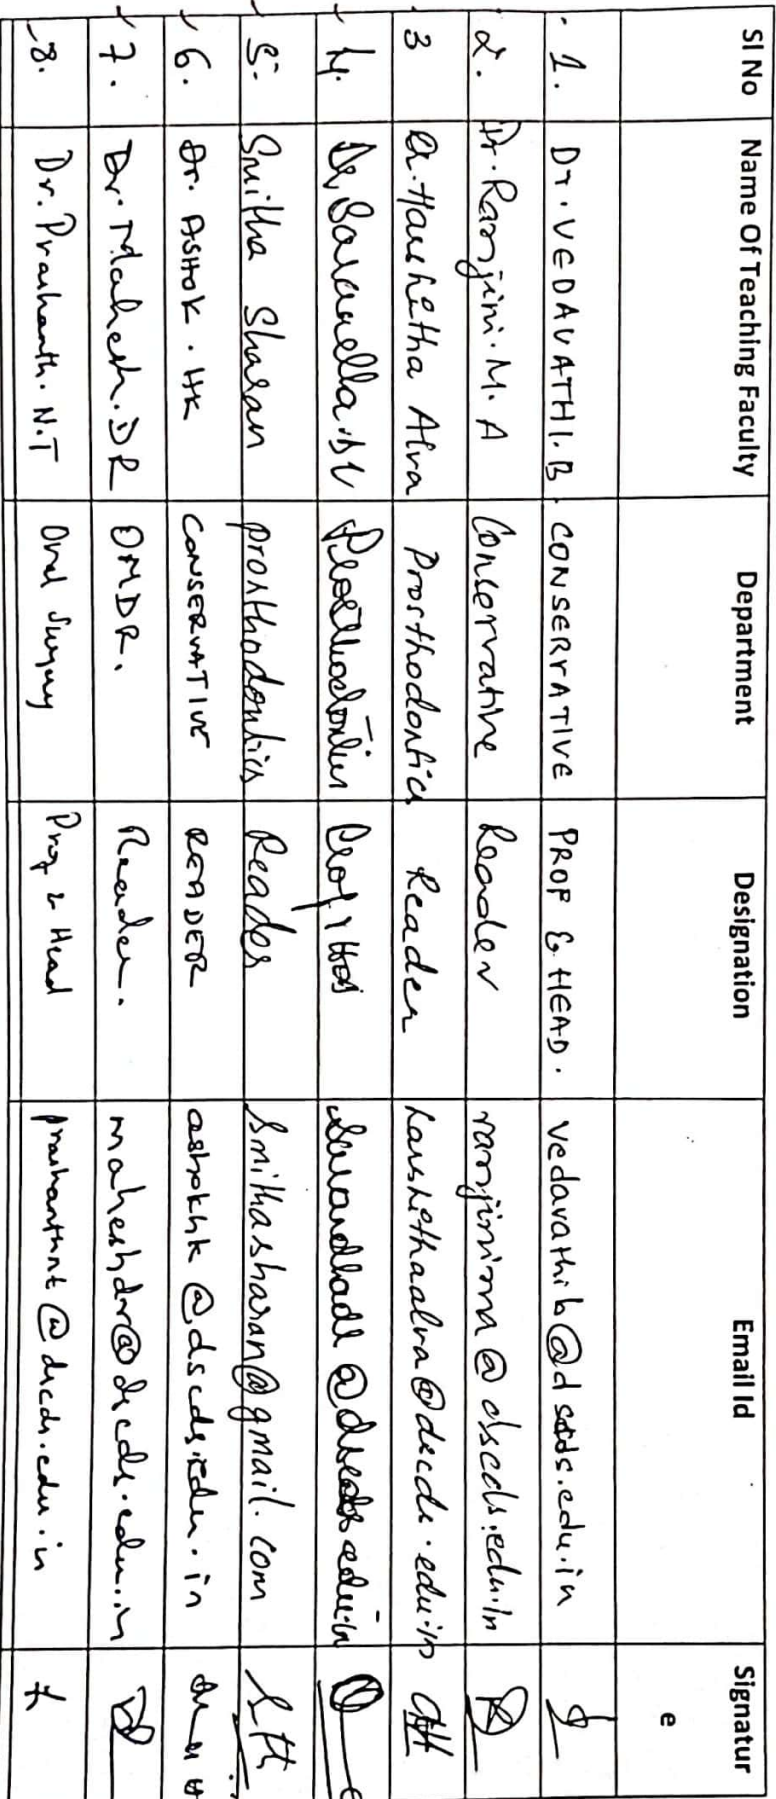 Sl No Name Of Teaching Faculty Department Designation Email Id Signatur
e
1. Dr. VEDAVATHI. B. CONSERVATIVE PROF & HEAD. vedavathib@dscds.edu.in
2. Dr. Ranjini. M. A Conservative Reader ranjinima@dscds.edu.in
3 Dr. Harshitha Alva Prosthodontics Reader harshithaalva@dscds.edu.in
4. Dr. Prosthodontics Prof & HOD
5. Smitha Sharan prosthodontics Reader smithasharan@gmail.com
6. Dr. ASHOK. HK CONSERVATIVE READER ashokhk@dscds.edu.in
7. Dr. Mahesh. DR OMDR. Reader. maheshdr@dscds.edu.in
8. Dr. Prashanth. N.T Oral Surgery Prof & Head prashanthnt@dscds.edu.in